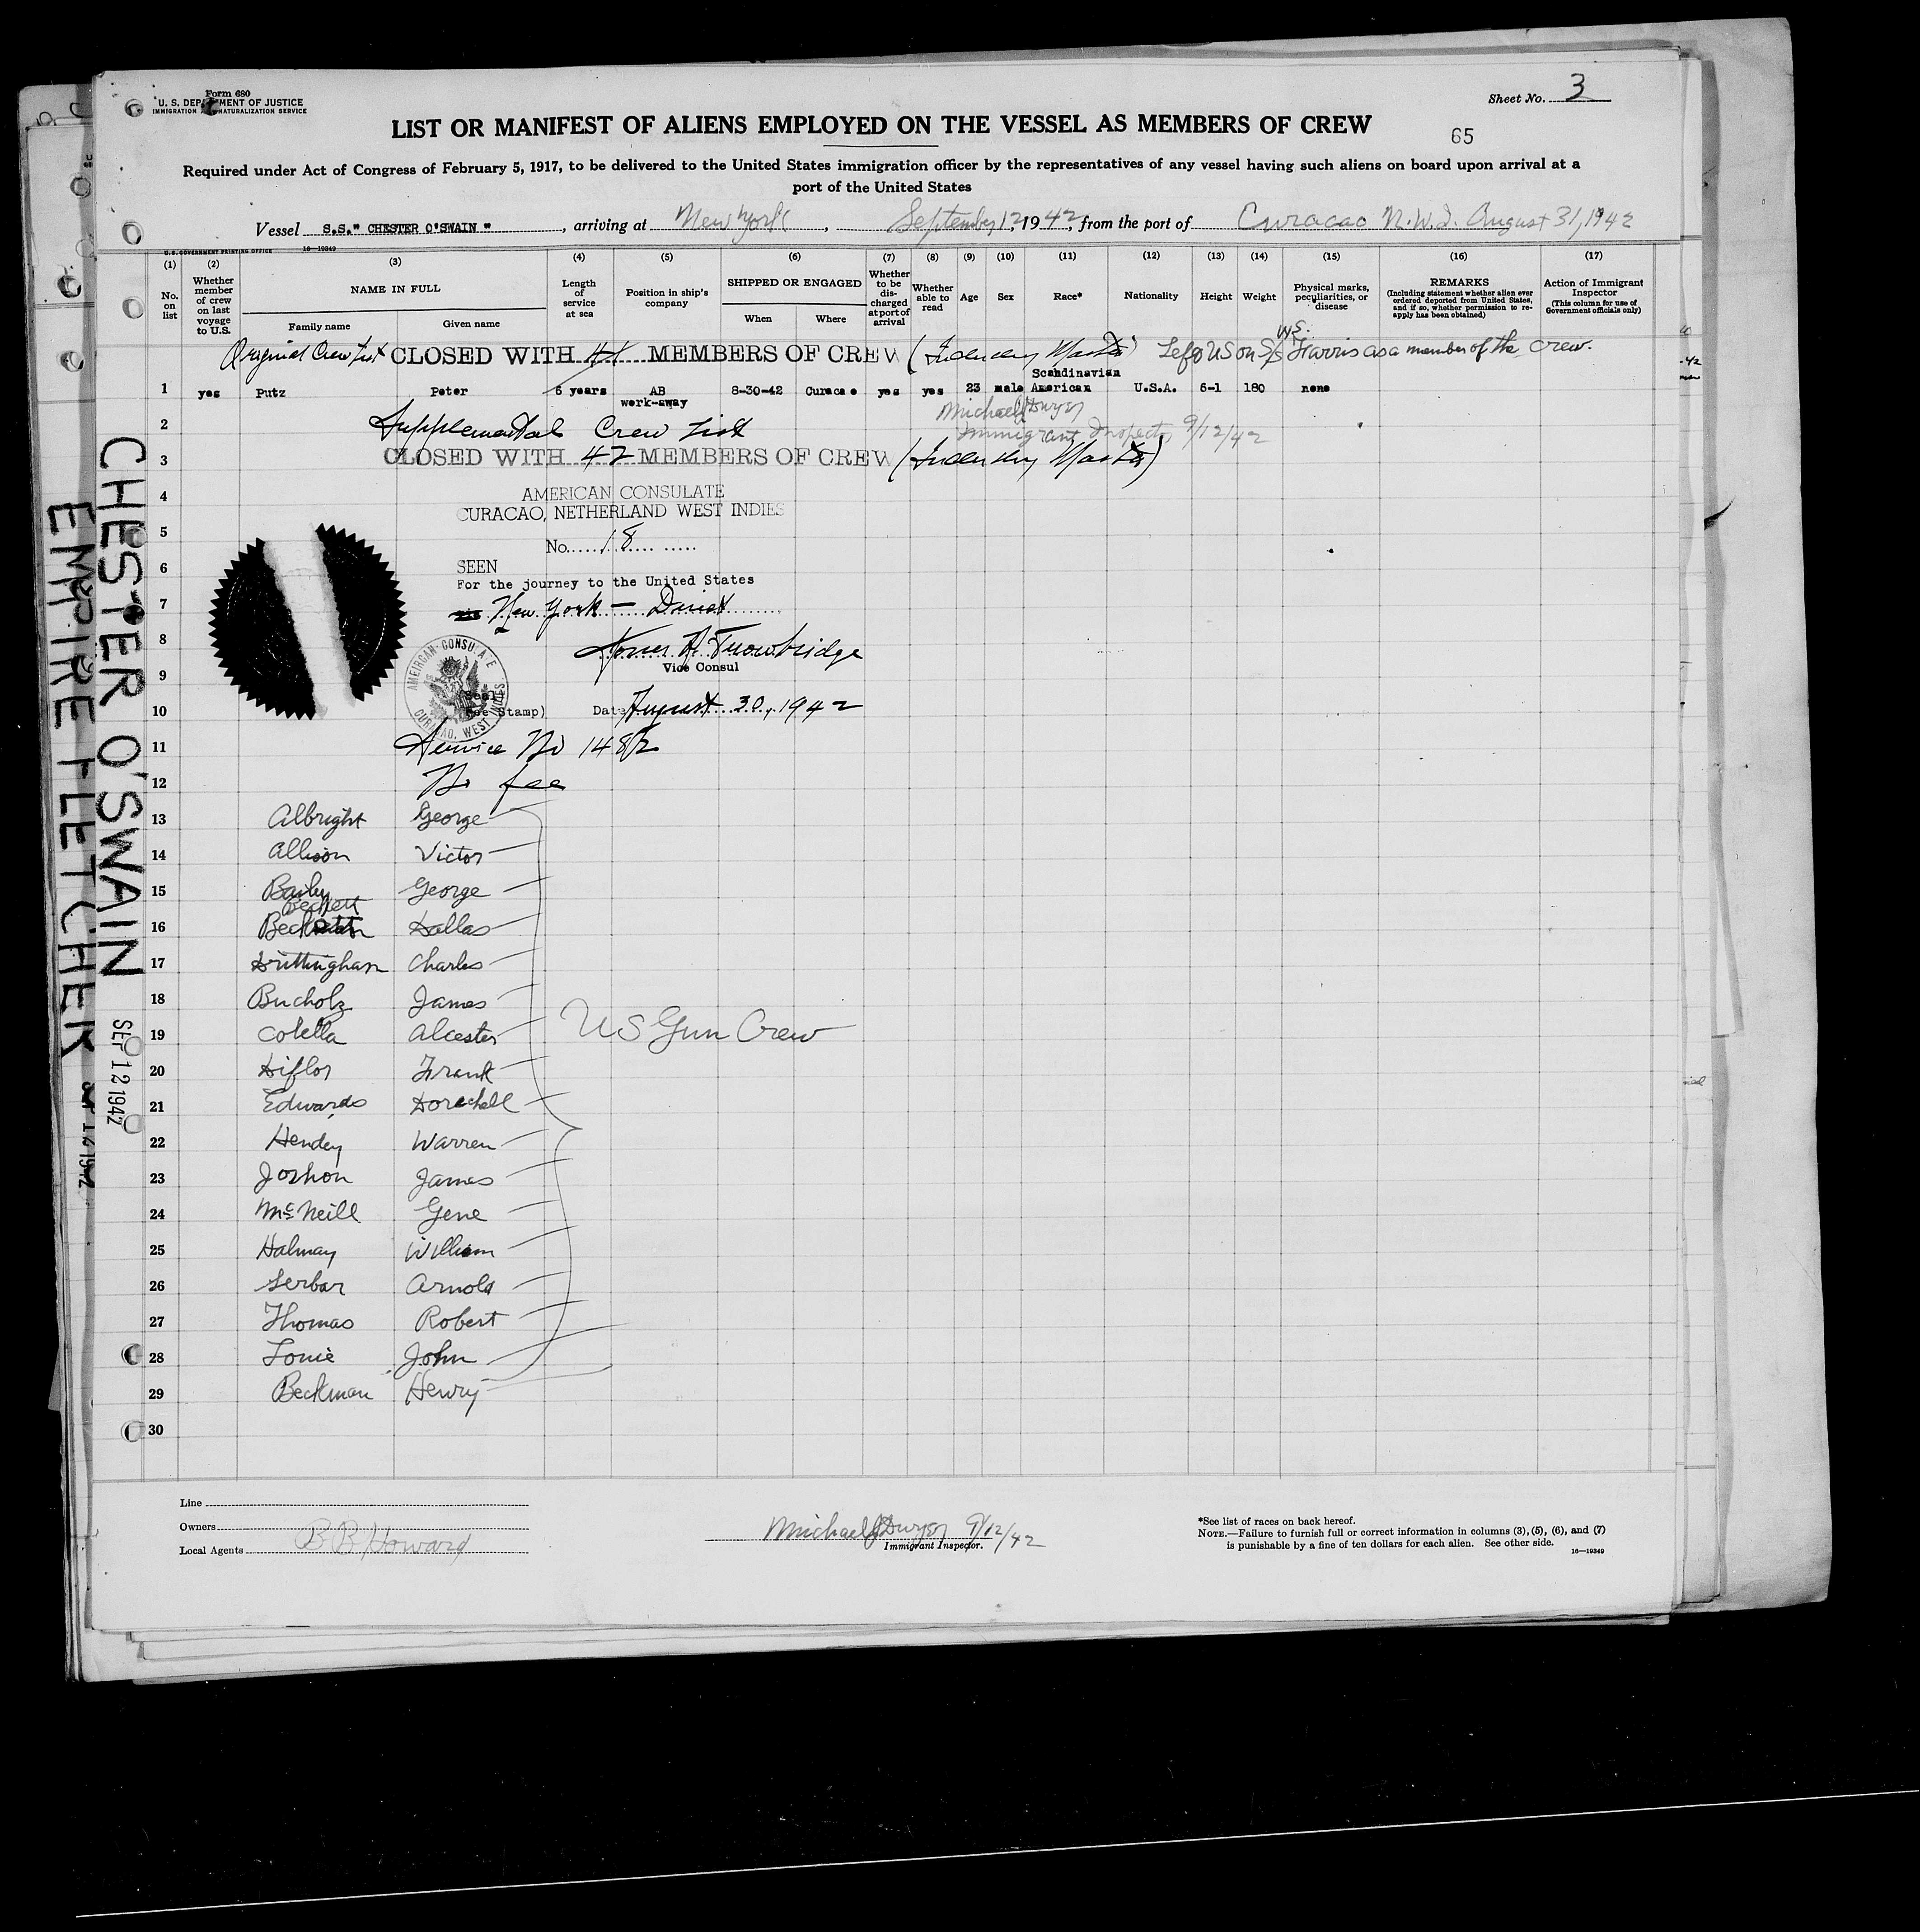 Form 680
U. S. DEPARTMENT OF JUSTICE
IMMIGRATION AND NATURALIZATION SERVICE
Sheet No. 3
LIST OR MANIFEST OF ALIENS EMPLOYED ON THE VESSEL AS MEMBERS OF CREW
65
Required under Act of Congress of February 5, 1917, to be delivered to the United States immigration officer by the representatives of any vessel having such aliens on board upon arrival at a
port of the United States
Vessel S.S." CHESTER O'SWAIN ", arriving at New York, September 12, 1942, from the port of Curacao N.W.I. August 31, 1942
U.S. GOVERNMENT PRINTING OFFICE 16—19349
(1) (2) (3) (4) (5) (6) (7) (8) (9) (10) (11) (12) (13) (14) (15) (16) (17)
No. on list
Whether member of crew on last voyage to U.S.
NAME IN FULL
Family name Given name
Length of service at sea
Position in ship's company
SHIPPED OR ENGAGED
When Where
Whether to be discharged at port of arrival
Whether able to read
Age
Sex
Race*
Nationality
Height
Weight
Physical marks, peculiarities, or disease
REMARKS
(Including statement whether alien ever ordered deported from United States, and if so, whether permission to reapply has been obtained)
Action of Immigrant Inspector
(This column for use of Government officials only)
Original Crew List CLOSED WITH 41 MEMBERS OF CREW (Including Master) Left US on S/S W.S. Farris as a member of the crew.
1 yes Putz Peter 6 years AB work-away 8-30-42 Curacao yes yes 23 male Scandinavian American U.S.A. 6-1 180 none
Michael J Dwyer
2 Supplemental Crew List Immigrant Inspector 9/12/42
3 CLOSED WITH 42 MEMBERS OF CREW (Including Master)
4 AMERICAN CONSULATE
CURACAO, NETHERLAND WEST INDIES
5 No. 18
6 SEEN
For the journey to the United States
7 New York — Direct
8 Trowbridge
Vice Consul
9
AMERICAN CONSULATE
CURACAO, WEST INDIES
(Seal)
10 Fee Stamp) Date August 30, 1942
11 Service No 1482
12 No fee
13 Albright George
14 Allison Victor
15 Baily George
Beckett
16 Dallas
17 Brittingham Charles
18 Bucholz James
19 Colella Alcester
20 Diflos Frank
21 Edwards Dorachell
US Gun Crew
22 Hendey Warren
23 Joshon James
24 McNeill Gene
25 Halmay William
26 Serbar Arnold
27 Thomas Robert
28 Louie John
29 Beckman Henry
30
Line
Owners
Local Agents B B Howard
Michael J Dwyer 9/12/42
Immigrant Inspector.
*See list of races on back hereof.
NOTE.—Failure to furnish full or correct information in columns (3), (5), (6), and (7)
is punishable by a fine of ten dollars for each alien. See other side.
16—19349
CHESTER O'SWAIN SEP 12 1942
EMPIRE FLETCHER